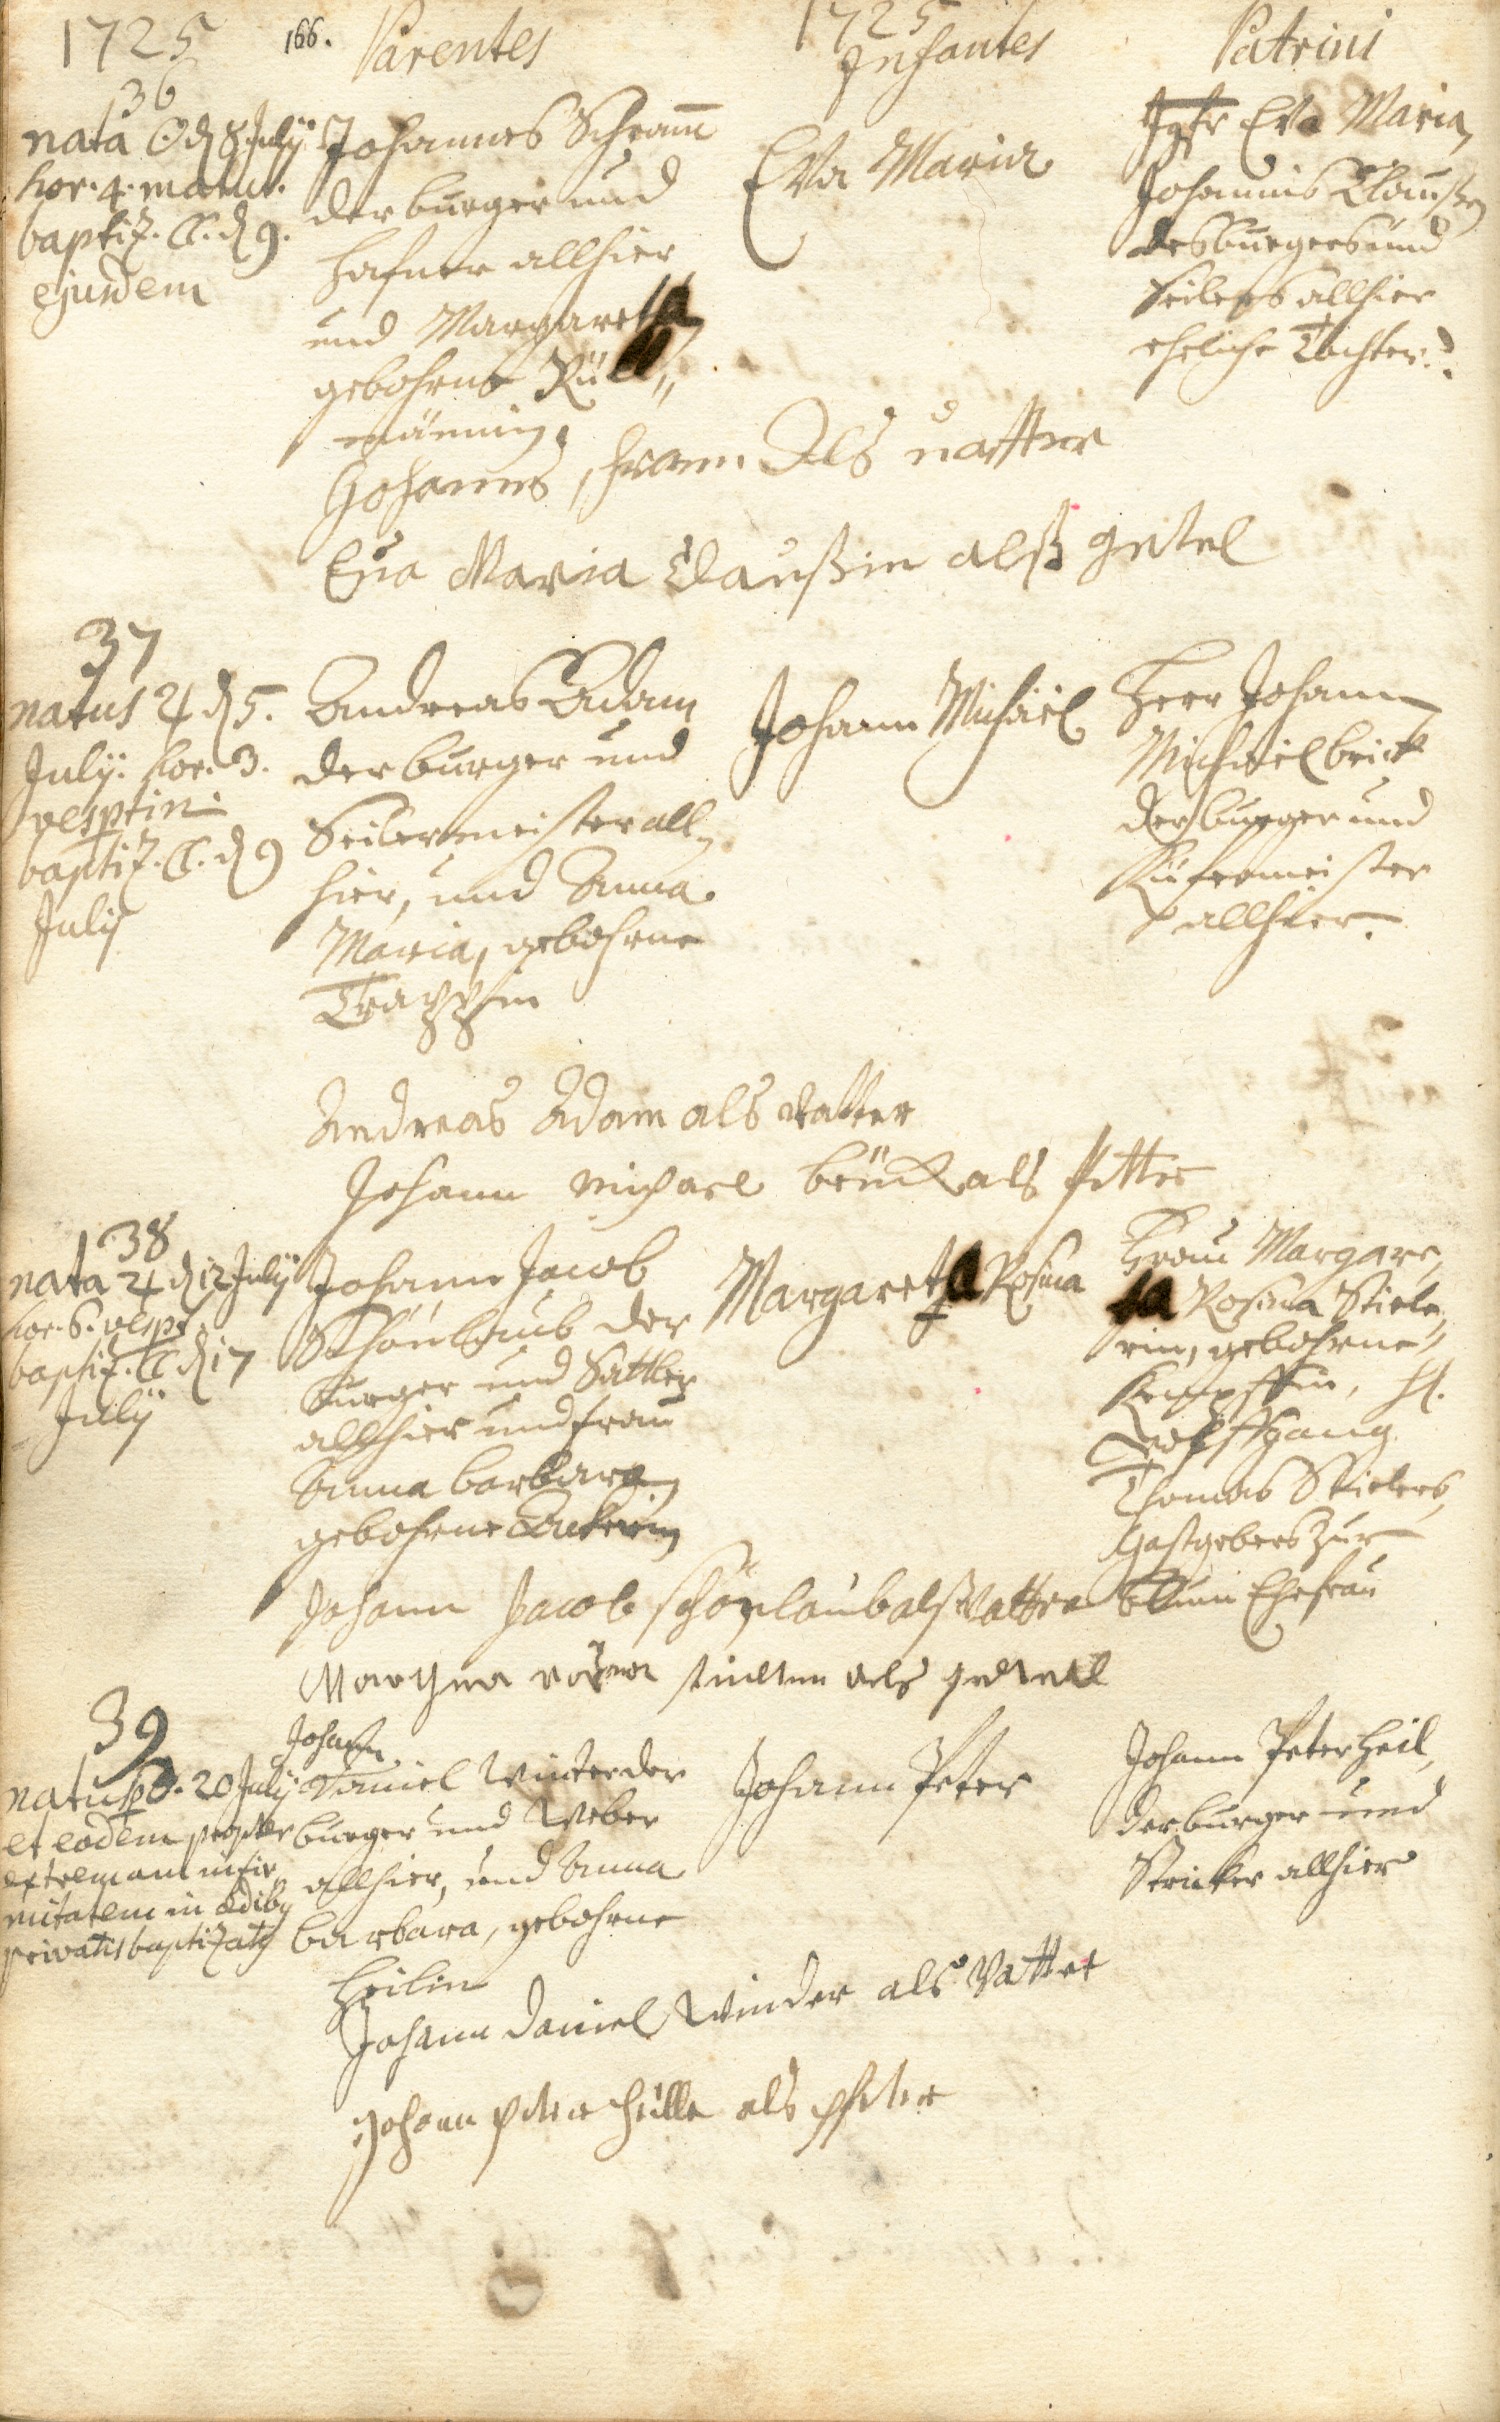 1725 166. Parentes 1725 Infantes Patrini
36
nata ☉ d 8 Julij
hor. 4. matut.
baptiz. ☾. d 9.
ejusdem
Johannes Schram̅
der burger und
hafner allhier
und Margareta
gebohrne Rüll„
männin.
Eva Maria
Jgfr Eva Maria,
Johannis Claußen
des burgers und
Seilers allhier
eheliche Tochter.
Johannes schramm Als vatter
Eva Maria Claußin alß getel
37
natus ♃ d 5.
Julij. hor. 3.
vesptin.
baptiz. ☾. d 9
Julij
Andreas Adam
der burger und
Seilermeister all„
hier, und Anna
Maria, gebohrne
Trappin
Johann Michäel
Herr Johann
Michael brick
der burger und
Küfermeister
allhier.
Andreas Adam als vatter
Johann michael brück als Petter
38
nata ♃ d 12 Julij
hor. 6. vesp.
baptiz. ☾ d 17
Julij
Johann Jacob
Schönlaub der
burger und Sattler
allhier und frau
Anna barbara
gebohrne
Margaretha Rosina
Frau Margare„
ta Rosina Stiele„
rin, gebohrne
Kempffin, H.
Wolffgang
Thomas Stielers,
Gastgebers zur
blum Ehefrau
Johann Jacob schönlaub alß Vatter
als gettel
39
natus ♂. 20 Julij
et eodem propter
extremam infir„
mitatem in ædibq
privatis baptizatq
Johann
Daniel Winter der
burger und Weber
allhier, und Anna
barbara, gebohrne
Heilin
Johann Peter
Johann Peter Heil,
der burger und
Stricker allhier
Johann Daniel Winder als Vatter
Johann peter heille als pfeter